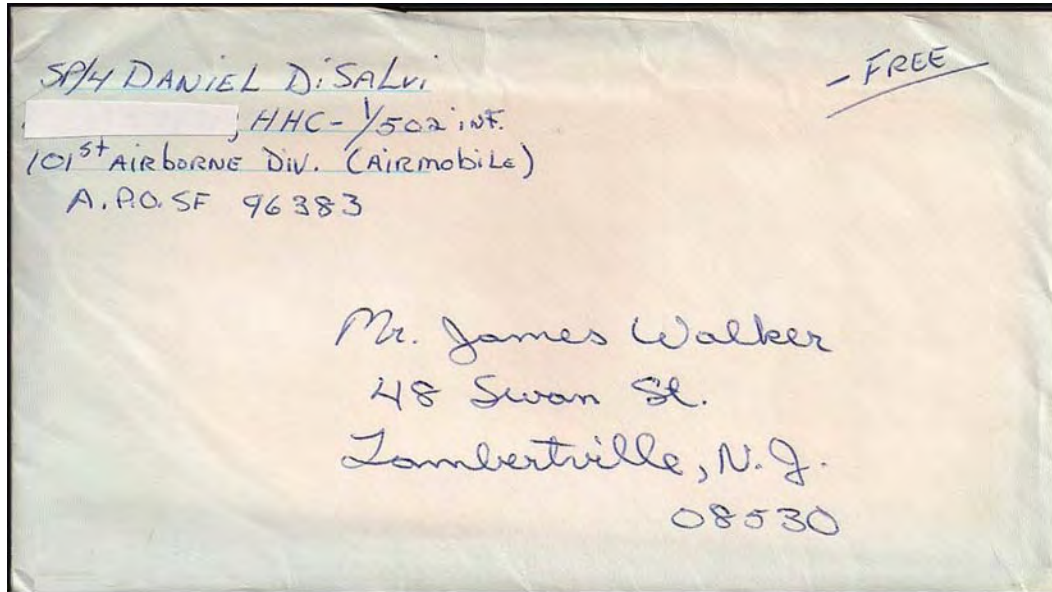 SP/4 DANIEL DiSALVi
- FREE
, HHC- 1/502 iNF.
101st AIRbORNE DiV. (AIRmobiLe)
A.P.O. SF 96383
Mr. James Walker
48 Swan St.
Lambertville, N.J.
08530